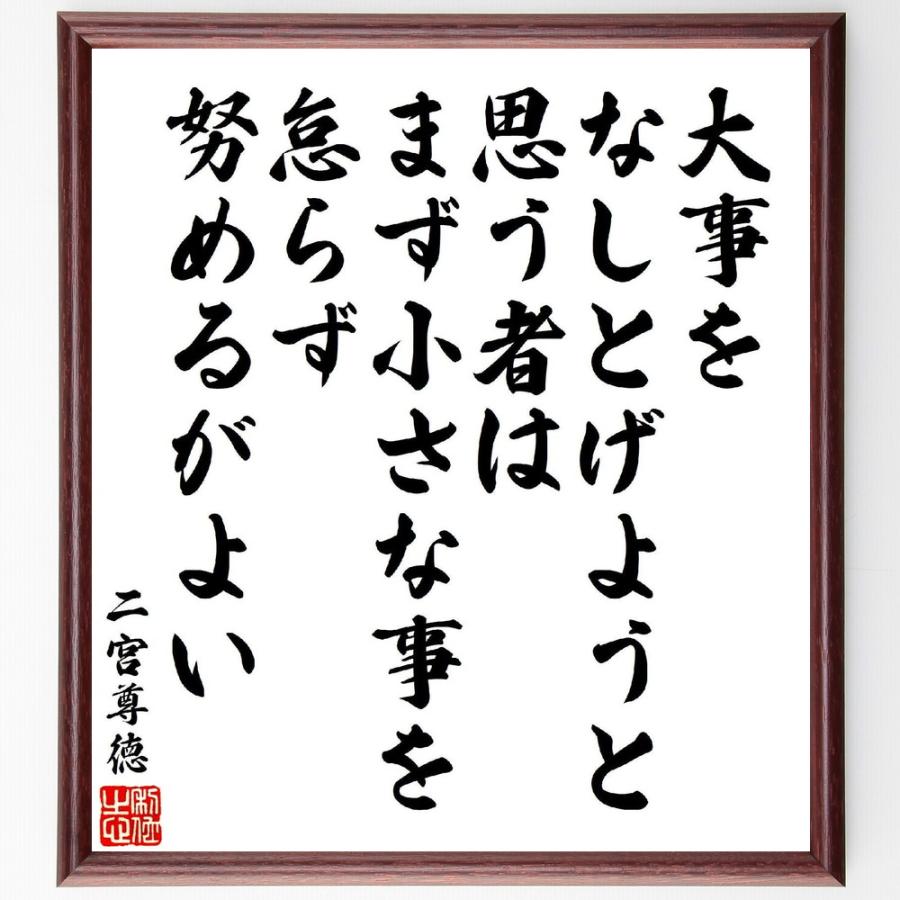 大事を
なしとげようと
思う者は
まず小さな事を
怠らず
努めるがよい
二宮尊徳